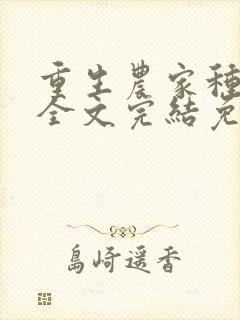 重生農家種
全文完結免
島崎遥香